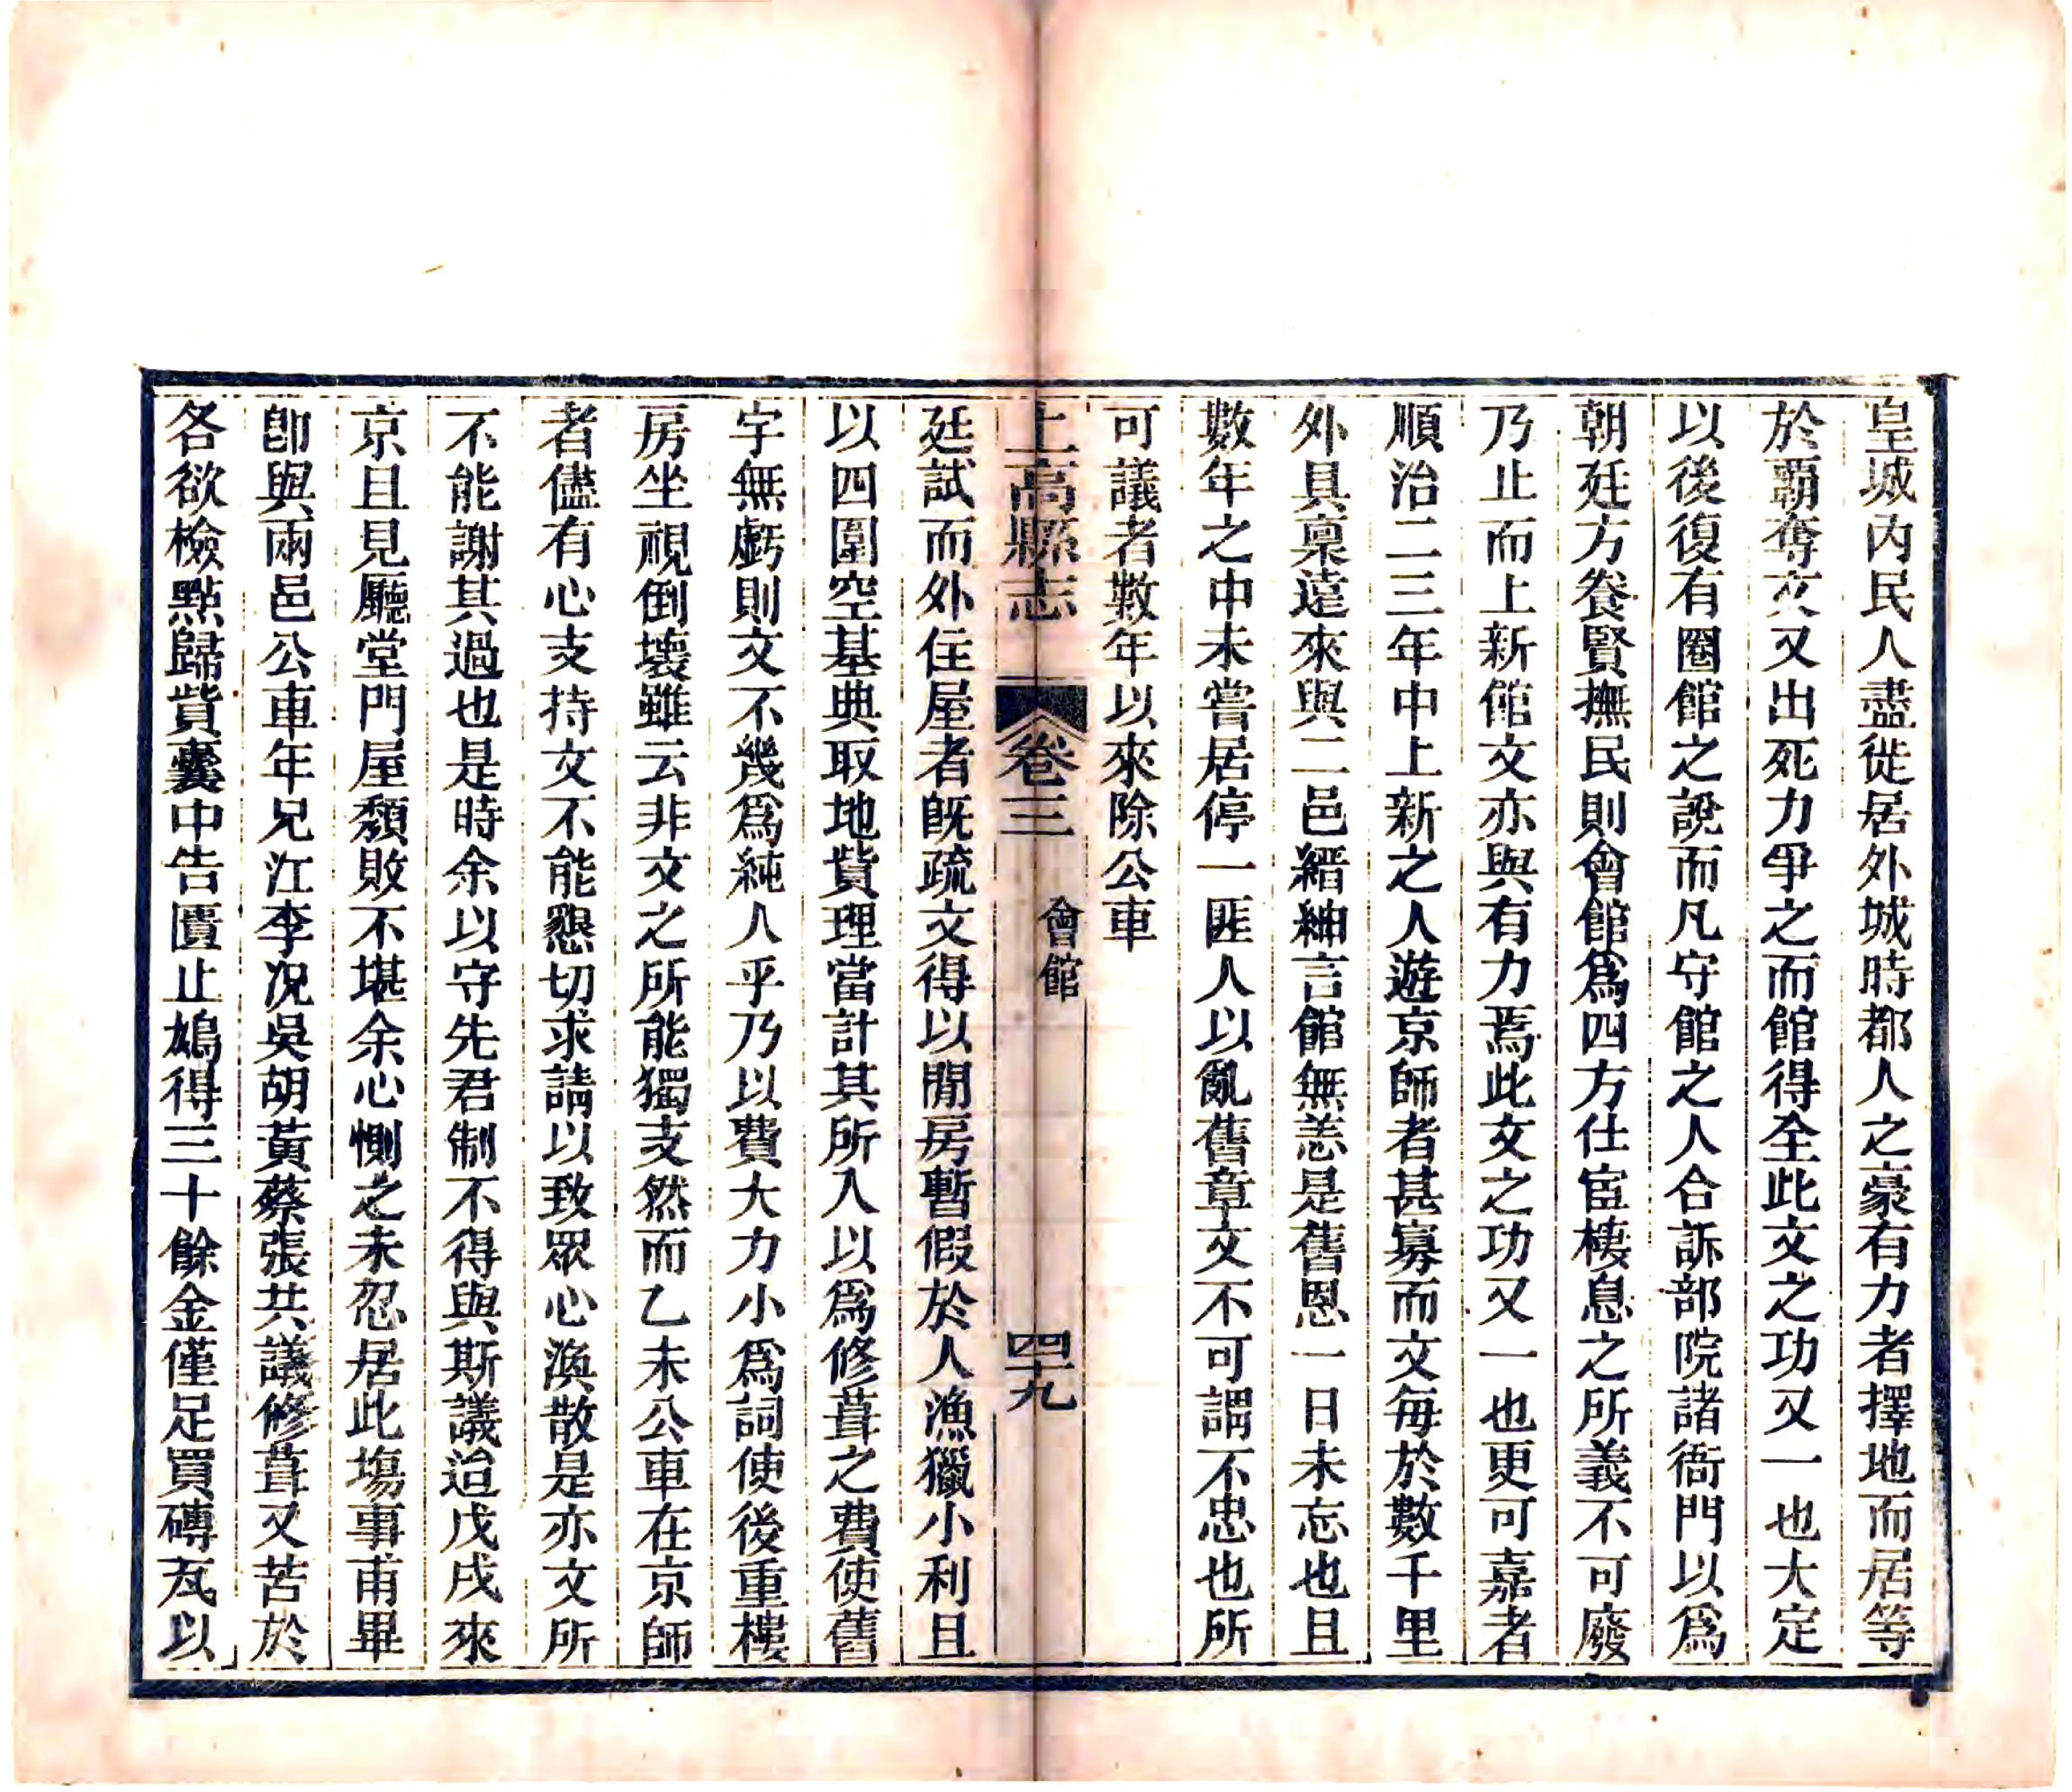 皇城內民人盡徙居外城時都人之豪有力者擇地而居等
於霸奪文又出死力爭之而館得全此文之功又一也大定
以後復有圈館之說而凡守館之人合訴部院諸衙門以為
朝廷方養賢撫民則會館為四方仕宦棲息之所義不可廢
乃止而上新館文亦與有力焉此文之功又一也更可嘉者
順治二三年中上新之人遊京師者甚寡而文每於數千里
外具稟遠來與二邑縉紳言館無恙是舊恩一日未忘也且
數年之中未嘗居停一匪人以亂舊章文不可謂不忠也所
可議者數年以來除公車
上高縣志 卷三 會館 四十九
廷試而外住屋者旣疏文得以閒房暫假於人漁獵小利且
以四圍空基典取地貲理當計其所入以為修葺之費使舊
宇無虧則文不幾為純人乎乃以費大力小為詞使後重樓
房坐視倒壞雖云非文之所能獨支然而乙未公車在京師
者儘有心支持文不能懇切求請以致眾心渙散是亦文所
不能謝其過也是時余以守先君制不得與斯議迨戊戌來
京且見廳堂門屋頹敗不堪余心惻之未忍居此塲事甫畢
卽與兩邑公車年兄江李況吳胡黃蔡張共議修葺又苦於
各欲檢點歸貲囊中告匱止鳩得三十餘金僅足買磚瓦以